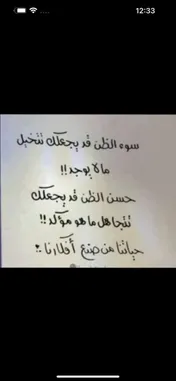 12:33
سوء الظن قد يجعلك تتخيل
مالا يوجد!!
حسن الظن قد يجعلك
تتجاهل ما هو مؤكد!!
حياتنا من صنع أفكارنا